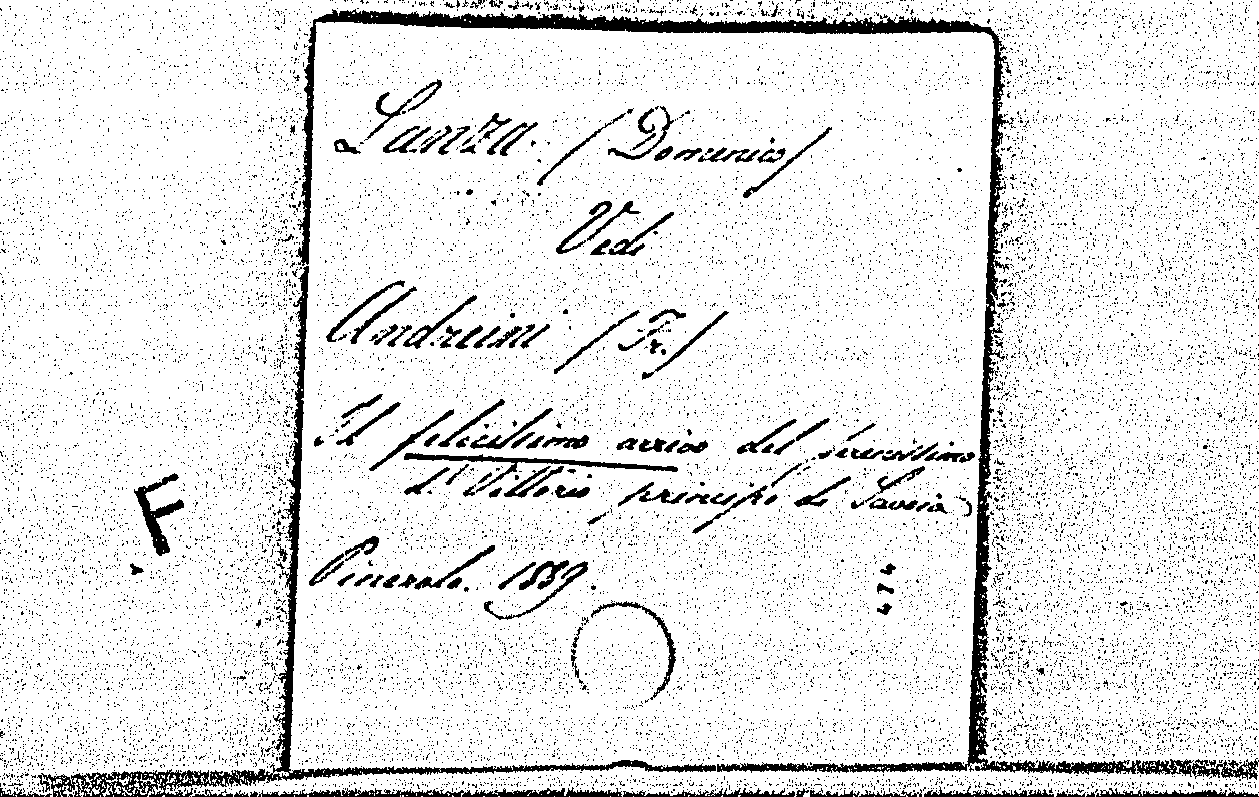 Lanza (Domenico)
Vedi
Andreini (Fr.)
Il felicissimo arrivo del serenissimo
d. Vittorio principe di Savoia
Pinerolo. 1889.
474
F